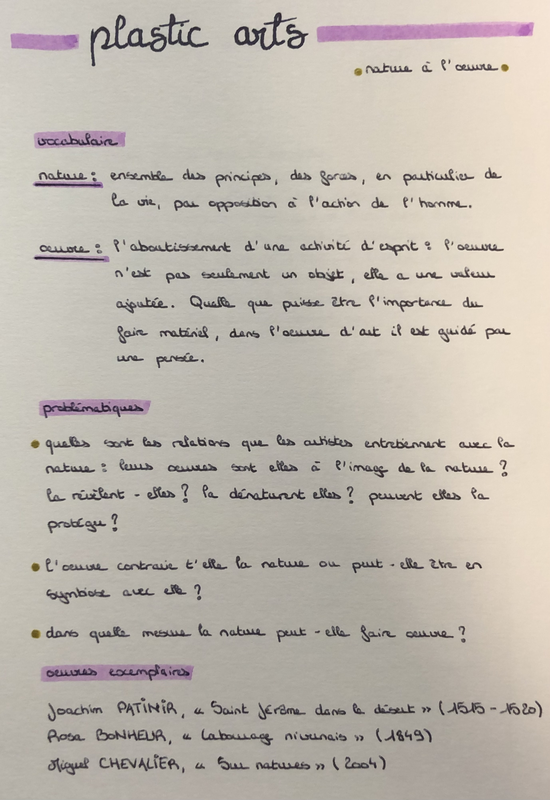 plastic arts
nature à l'œuvre
vocabulaire
nature : ensemble des principes, des forces, en particulier de
la vie, par opposition à l'action de l'homme.
œuvre : l'aboutissement d'une activité d'esprit : l'œuvre
n'est pas seulement un objet, elle a une valeur
ajoutée. Quelle que puisse être l'importance du
faire matériel, dans l'œuvre d'art il est guidé par
une pensée.
problématiques
quelles sont les relations que les artistes entretiennent avec la
nature : leurs œuvres sont elles à l'image de la nature ?
la révèlent - elles ? la dénaturent elles ? peuvent elles la
protéger ?
l'œuvre contrarie t'elle la nature ou peut - elle être en
symbiose avec elle ?
dans quelle mesure la nature peut - elle faire œuvre ?
œuvres exemplaires
Joachim PATINIR, « Saint Jérôme dans le désert » (1515 - 1520)
Rosa BONHEUR, « Labourage nivernais » (1849)
Miguel CHEVALIER, « Sur natures » (2004)